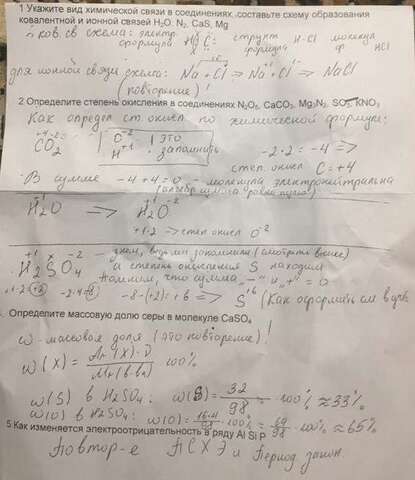 1 Укажите вид химической связи в соединениях ,составьте схему образования
ковалентной и ионной связей H₂O. N₂, CaS, Mg
ков св схема: электр. формула H C: структ формула H-Cl молекул ф HCl
для ионной связи схема: Na + Cl → Na⁺ Cl⁻ ⇒ NaCl
(повторение)!
2.Определите степень окисления в соединениях N₂O₅, CaCO₃, Mg₃N₂, SO₂, KNO₃
Как определ ст окисл по химической формуле:
CO₂ O⁻² H⁺¹ ! это запомнить -2·2 = -4 ⇒
степ. окисл C = +4
В сумме -4+4=0 - молекула электронейтральна
H₂O ⇒ H₂⁺¹O⁻²
+1·2 ⇒ степ окисл O⁻²
H₂SO₄ - знаем, водор запомнили (смотреть выше)
и степень окисления S находим
помним, что сумма "-" и "+" = 0
+1·2 -2·4 -8-(+2)=+6 ⇒ S⁺⁶ (Как оформить см выше
Определите массовую долю серы в молекуле CaSO₄
ω - массовая доля (это повторение)!
ω(X) = Ar(X)·n / Mr(в-ва) · 100%
ω(S) в H₂SO₄: ω(S) = 32/98 · 100% ≈ 33%
ω(O) в H₂SO₄: ω(O) = 16·4/98 · 100% = 64/98 · 100% ≈ 65%
5.Как изменяется электроотрицательность в ряду Al Si P
Повтор-е ПСХЭ и Период. закон.